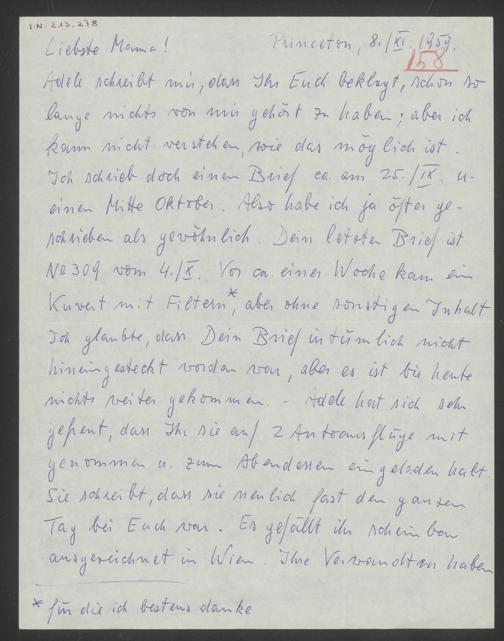 I.N. 213.278
Liebste Mama! Princeton, 8./XI. 1959.
158
Adele schreibt mir, dass Ihr Euch beklagt, schon so
lange nichts von mir gehört zu haben; aber ich
kann nicht verstehen, wie das möglich ist.
Ich schrieb doch einen Brief ca. am 25./IX. u.
einen Mitte Oktober. Also habe ich ja öfter ge-
schrieben als gewöhnlich. Dein letzter Brief ist
No 309 vom 4./X. Vor ca. einer Woche kam ein
Kuvert mit Filtern*, aber ohne sonstigen Inhalt
Ich glaubte, dass Dein Brief irrtümlich nicht
hineingesteckt worden war, aber es ist bis heute
nichts weiter gekommen. - Adele hat sich sehr
gefreut, dass Ihr sie auf 2 Autoausflüge mit
genommen u. zum Abendessen eingeladen habt
Sie schreibt, dass sie neulich fast den ganzen
Tag bei Euch war. Es gefällt ihr scheinbar
ausgezeichnet in Wien. Ihre Verwandten haben
* für die ich bestens danke